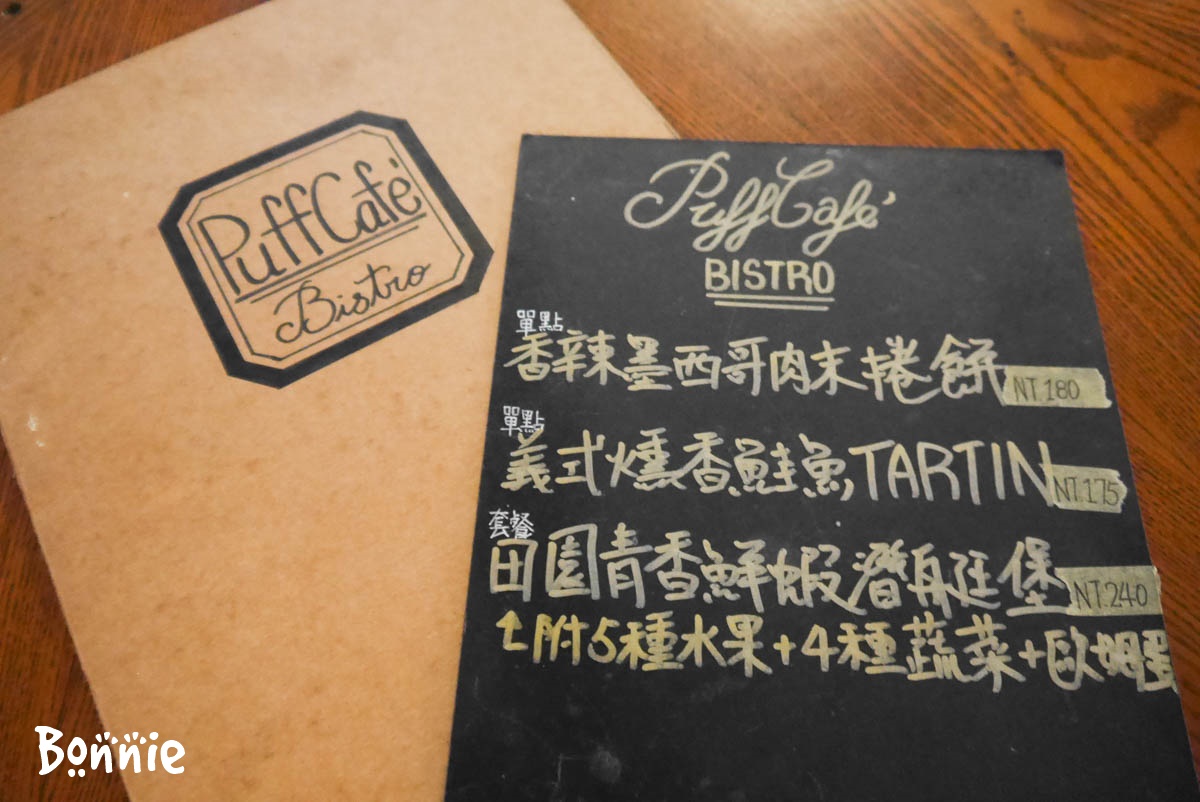 PuffCafé
Bistro
PuffCafé
BISTRO
單點
香辣墨西哥肉末捲餅 NT.180
單點
義式燻香鮭魚TARTIN NT.175
套餐
田園青香鮮蝦潛艇堡 NT.240
↑附5種水果+4種蔬菜+歐姆蛋
Bonnie